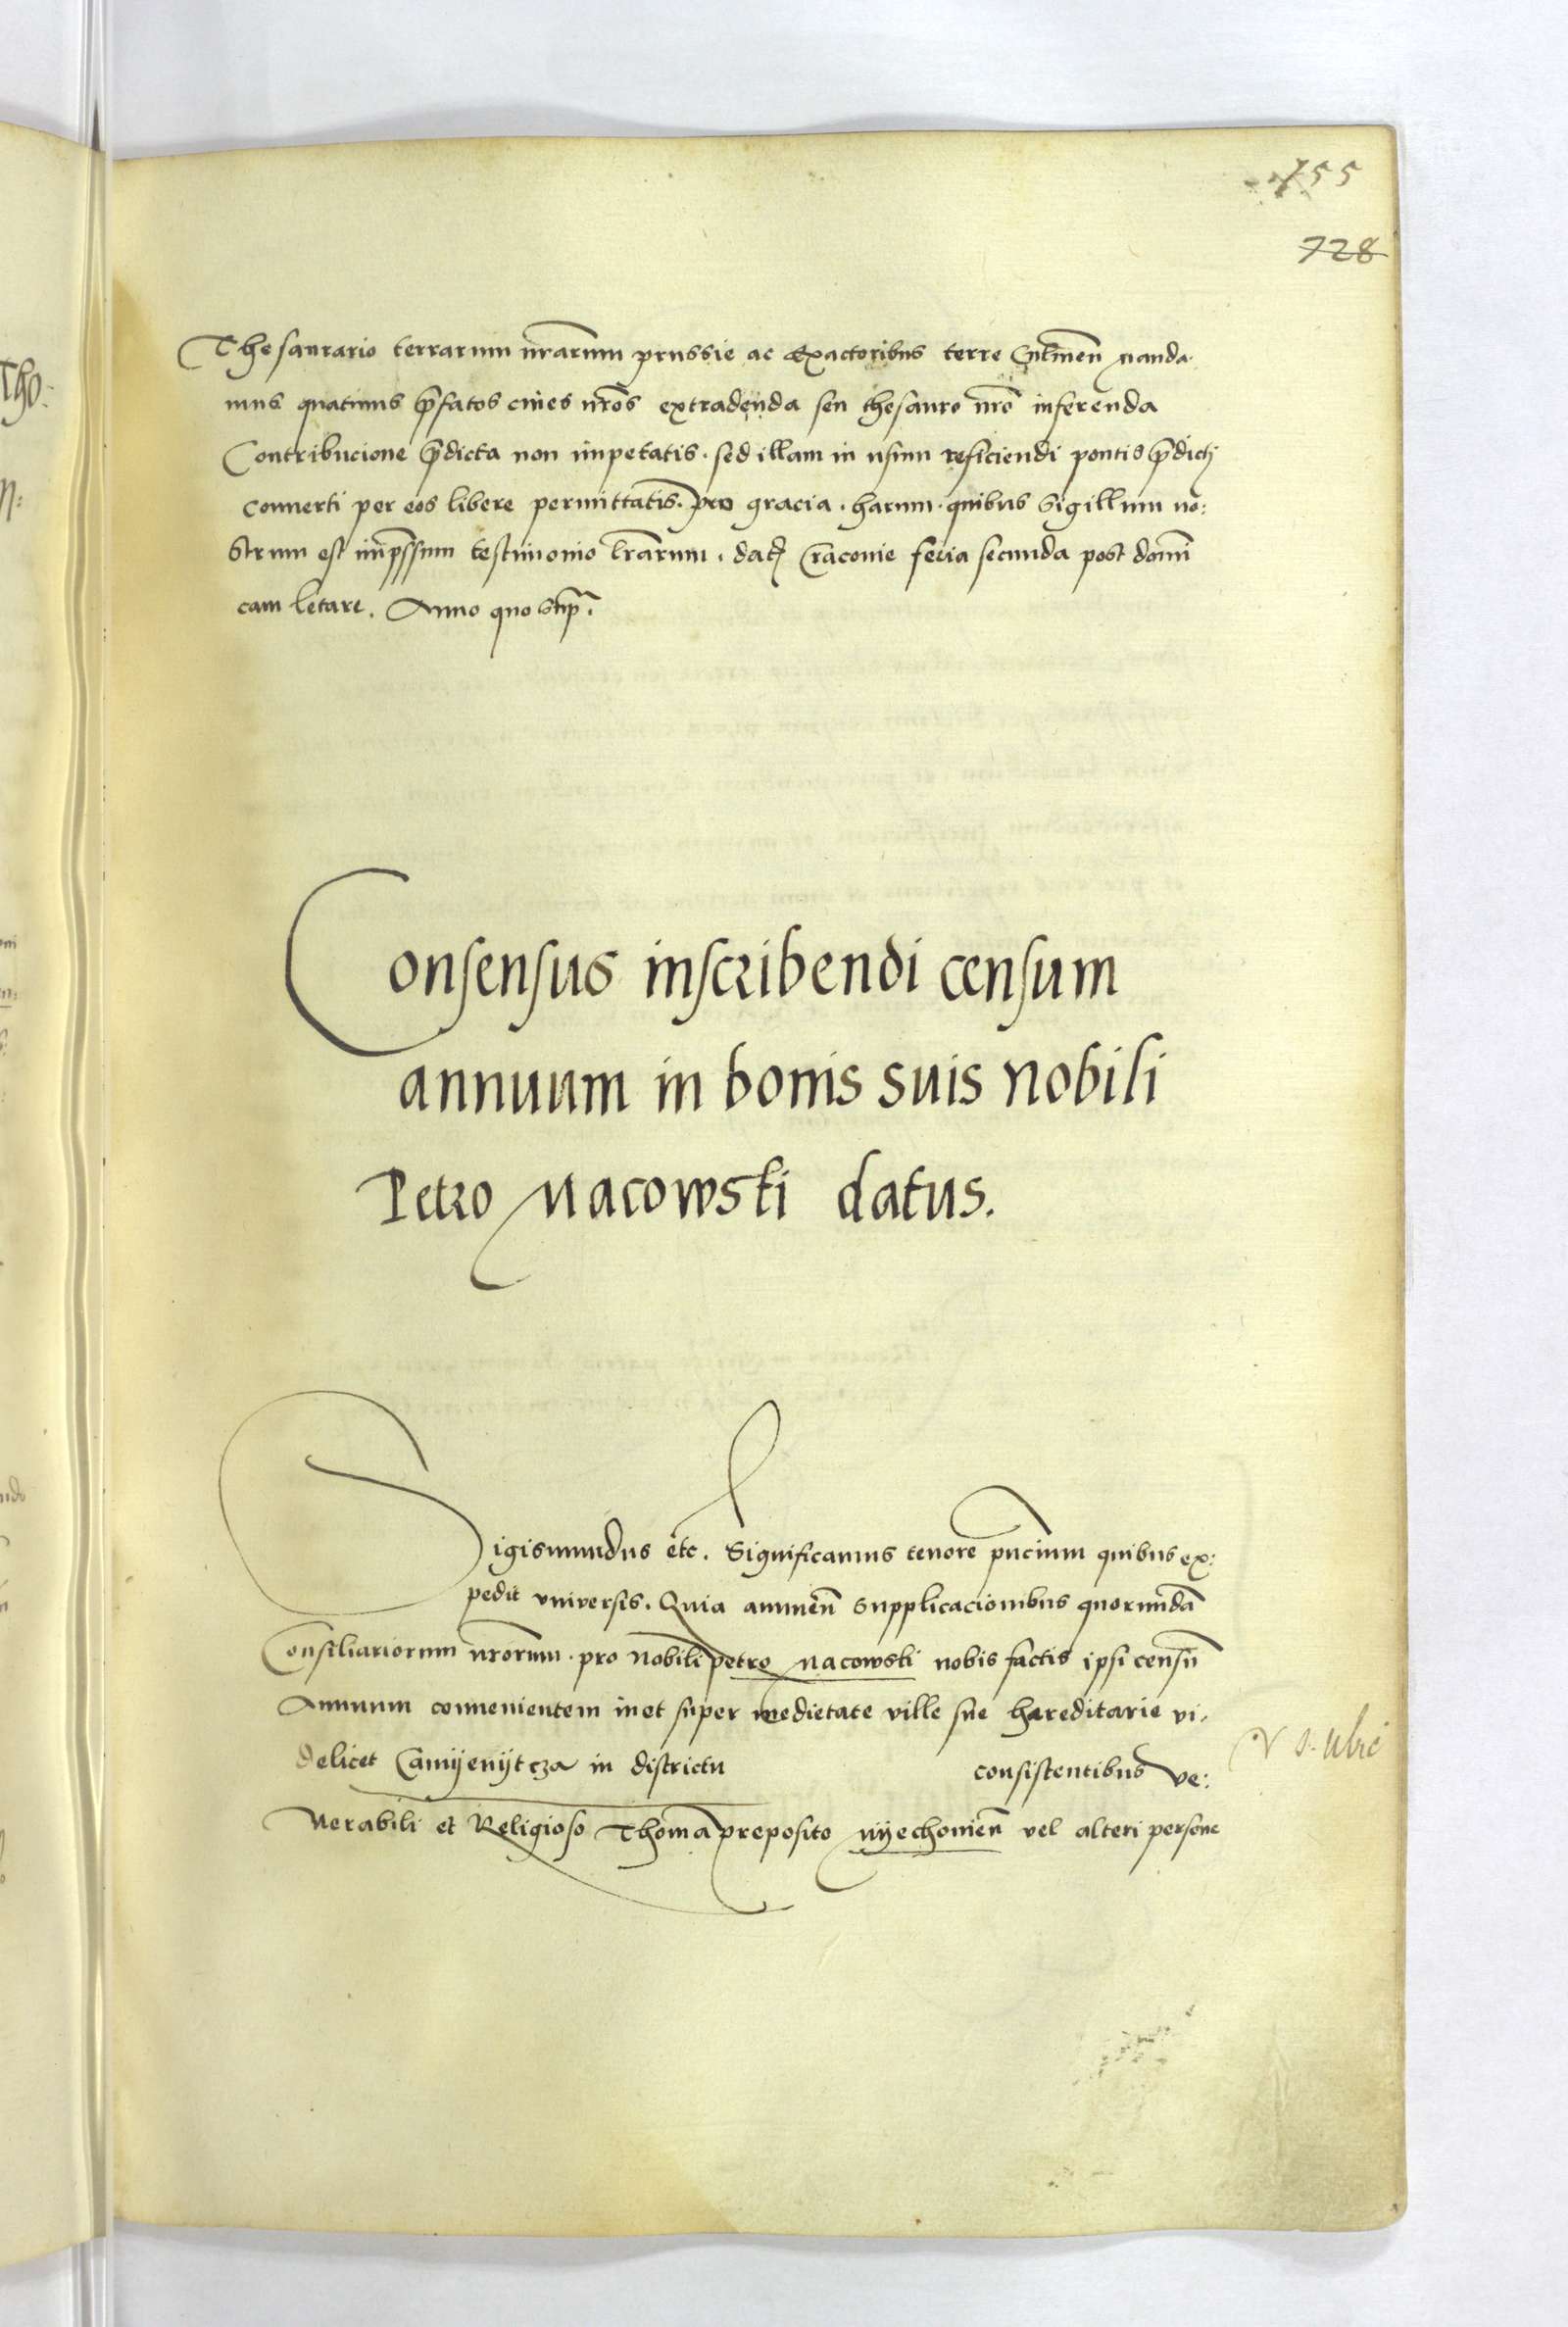 755
728
Thesaurario terrarum nrarum prussie ac Exactoribus terre Culmen manda-
mus quatinus pfatos ciues nros extradenda seu thesauro nro inferenda
Contribucione pdicta non impetatis. sed illam in usum reficiendi pontis pdicti
conuerti per eos libere permittatis. pro gracia. harum. quibus Sigillum no:
strum est impssum testimonio lrarum. dat Cracouie feria secunda post domi
cam letare. Anno quo sup.
Consensus inscribendi censum
annuum in bonis suis nobili
Petro Macowski datus.
Sigismundus etc. Significamus tenore pncium quibus ex:
pedit vniuersis. Quia annuen supplicacionibus quorundam
Consiliariorum nrorum. pro Nobili petro Macowski nobis factis ipsi censu
Annuum conuenientem in et super medietate ville sue hareditarie vi-
delicet Camyenytcza in districtu consistentibus ve:
Nerabili et Religioso Thoma preposito myechouien vel alteri persone